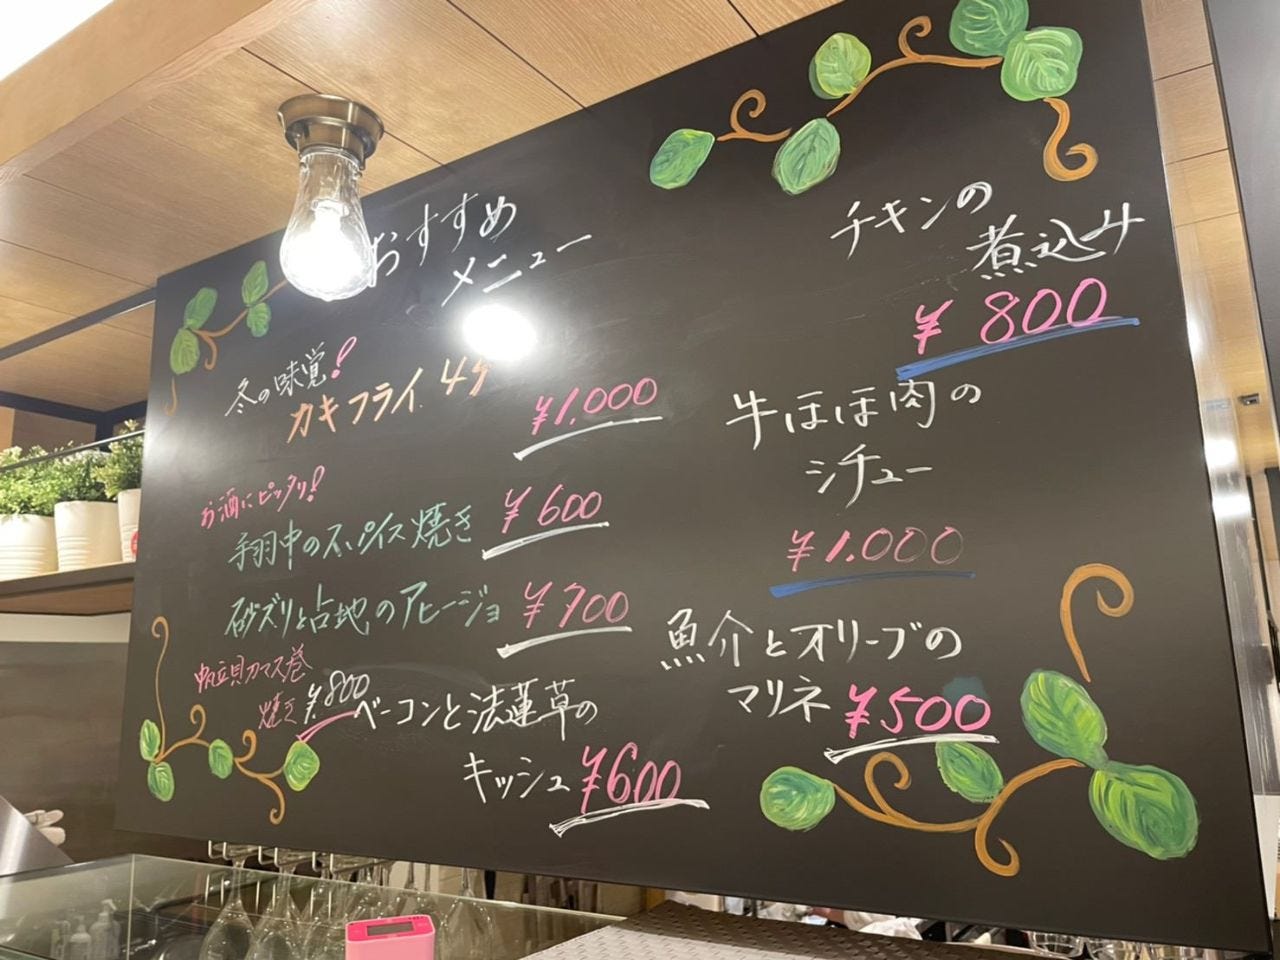 おすすめ
メニュー
冬の味覚!
カキフライ 4ケ
¥1.000
お酒にピッタリ!
手羽中のスパイス焼き ¥600
砂ズリと占地のアヒージョ ¥700
帆立貝刀マス巻
焼き ¥.800
ベーコンと法蓮草の
キッシュ ¥600
チキンの
煮込み
¥ 800
牛ほほ肉の
シチュー
¥1.000
魚介とオリーブの
マリネ ¥500